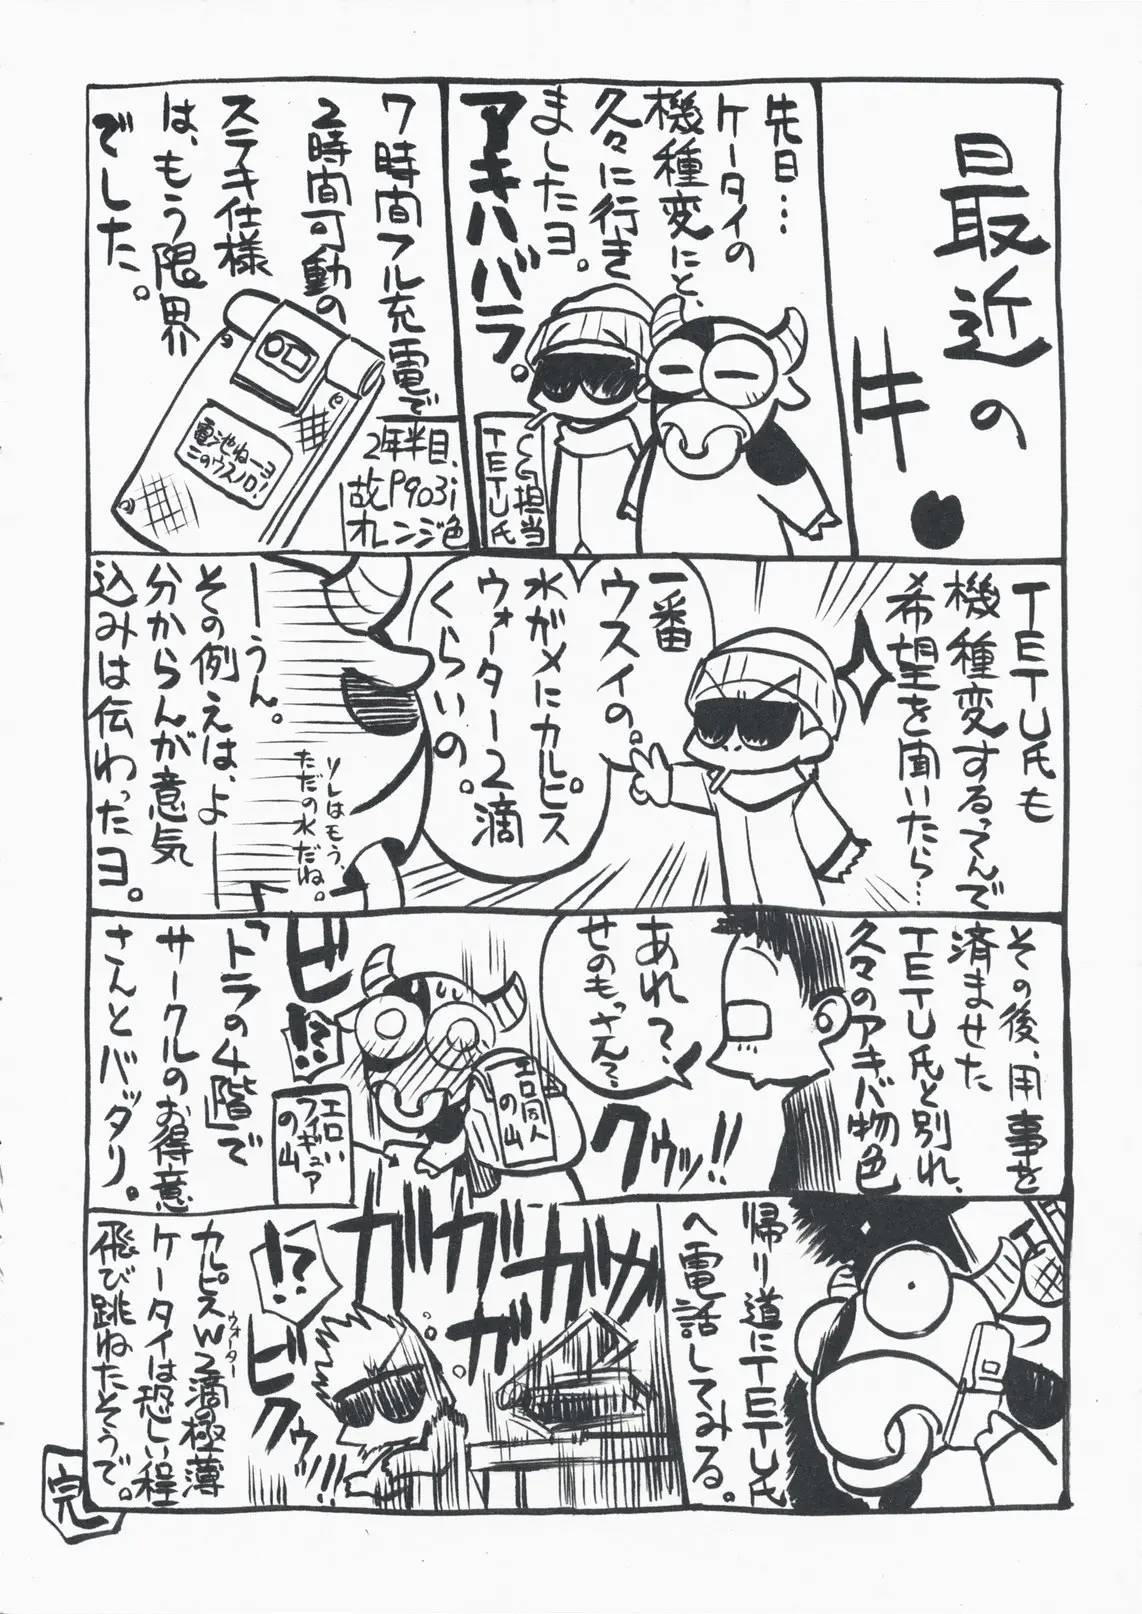 最近の
牛
先日…
ケータイの
機種変にと、
久々に行き
ましたヨ。
アキハバラ。
CG担当
TETU氏
7時間フル充電で
2時間可動の
ステキ仕様
は、もう限界
でした。
電池ねーヨ
このウスノロ!
2年半目、
故P903i
オレンジ色
TETU氏も
機種変するってんで
希望を聞いたら…
一番
ウスイの。
水がメにカルピス
ウォーター2滴
くらいの。
ソレはもう、
ただの水だね。
ーうん。
その例えは、よー
分からんが意気
込みは伝わったヨ。
その後、用事を
済ませた
TETU氏と別れ、
久々のアキバ物色
あれ?
せのもっさん?
クゥッ!!
エロ同人
の山
ビ
!?
エロい
フィギュア
の山
「トラの4階」で
サークルのお得意
さんとバッタリ。
帰り道にTETU氏
へ電話してみる。
ガガガガガ
!?
ビクゥッ!!
カルピスW2滴極薄
ウォーター
ケータイは恐しい程
飛び跳ねたそうで。
完